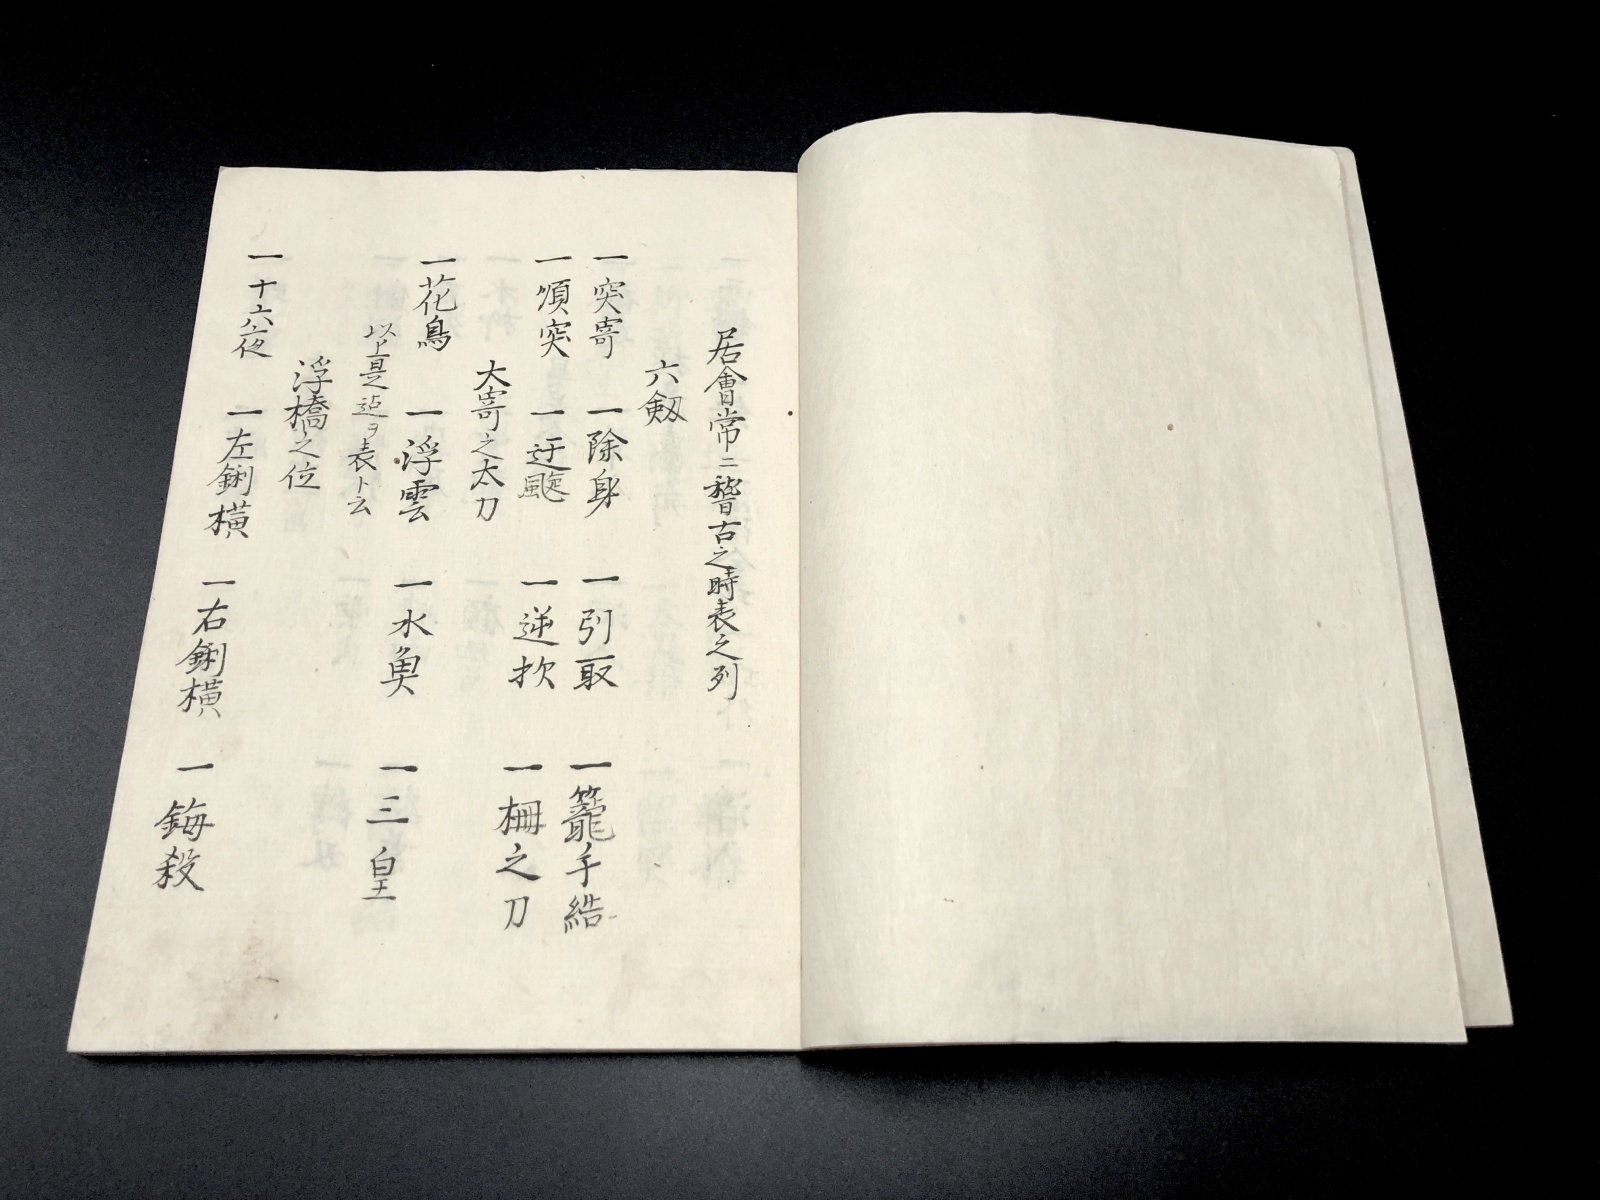 居會常ニ稽古之時表之列
六剱
一突寄 一除身 一引取 一籠手結
一項突 一迂颷 一逆抜 一柵之刀
大寄之太刀
一花鳥 一浮雲 一水魚 一三皇
以上是迠ヲ表ト云
浮橋之位
一十六夜 一左鋓横 一右鋓横 一鋂殺